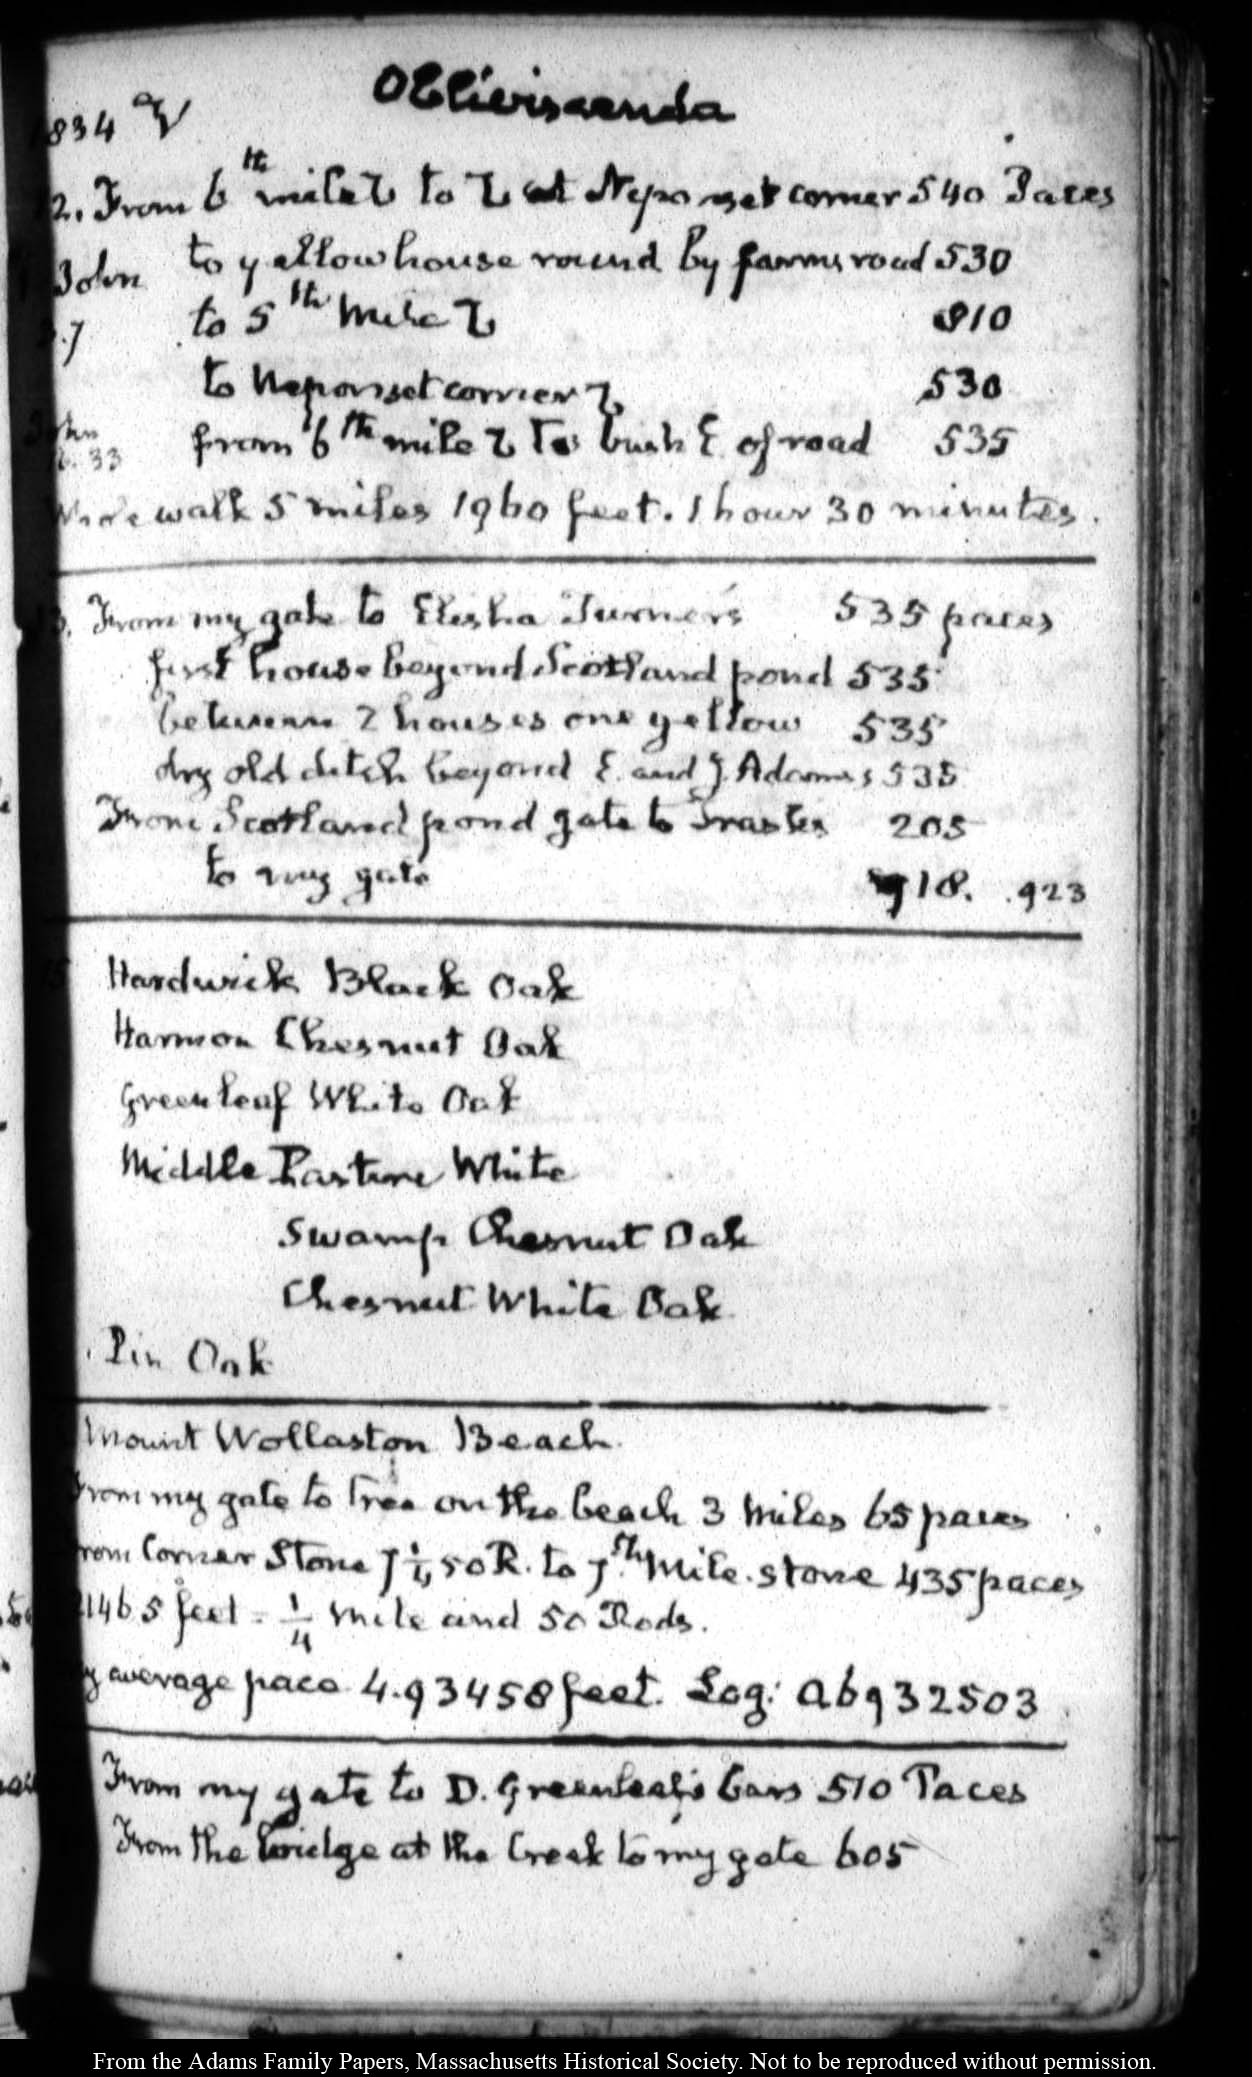 Obliviscenda
1834 V
12. From 6th mile to at Neponset corner 540 Paces
John to yellow house round by farms road 530
.7 to 5th Mile 810
to Neponset corner 530
John from 6th mile to bush E of road 535
16. 33
Whole walk 5 miles 1960 feet. 1 hour 30 minutes.
13. From my gate to Elisha Turner's 535 paces
first house beyond Scotland pond 535
between 2 houses one yellow 535
dry old ditch beyond E. and J. Adams's 535
From Scotland pond gate to Trasks 205
to my gate 718. .923
15 Hardwick Black Oak
Harmon Chesnut Oak
Greenleaf White Oak
Middle Pasture White
Swamp Chesnut Oak
Chesnut White Oak
Pin Oak
Mount Wollaston Beach.
From my gate to tree on the beach 3 Miles 65 paces
From Corner Stone 7 1/4, 50 R. to 7th Mile stone 435 paces
2146 5 feet = 1/4 Mile and 50 Rods.
My average pace 4.93458 feet. Log: 0.6932503
From my gate to D. Greenleaf's bars 510 Paces
From the bridge at the Creek to my gate 605
From the Adams Family Papers, Massachusetts Historical Society. Not to be reproduced without permission.